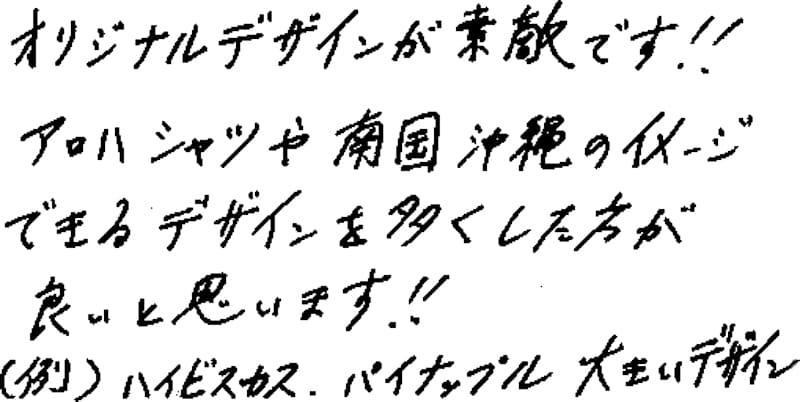 オリジナルデザインが素敵です!!
アロハシャツや南国沖縄のイメージ
できるデザインを多くした方が
良いと思います!!
(例)ハイビスカス. パイナップル 大きいデザイン